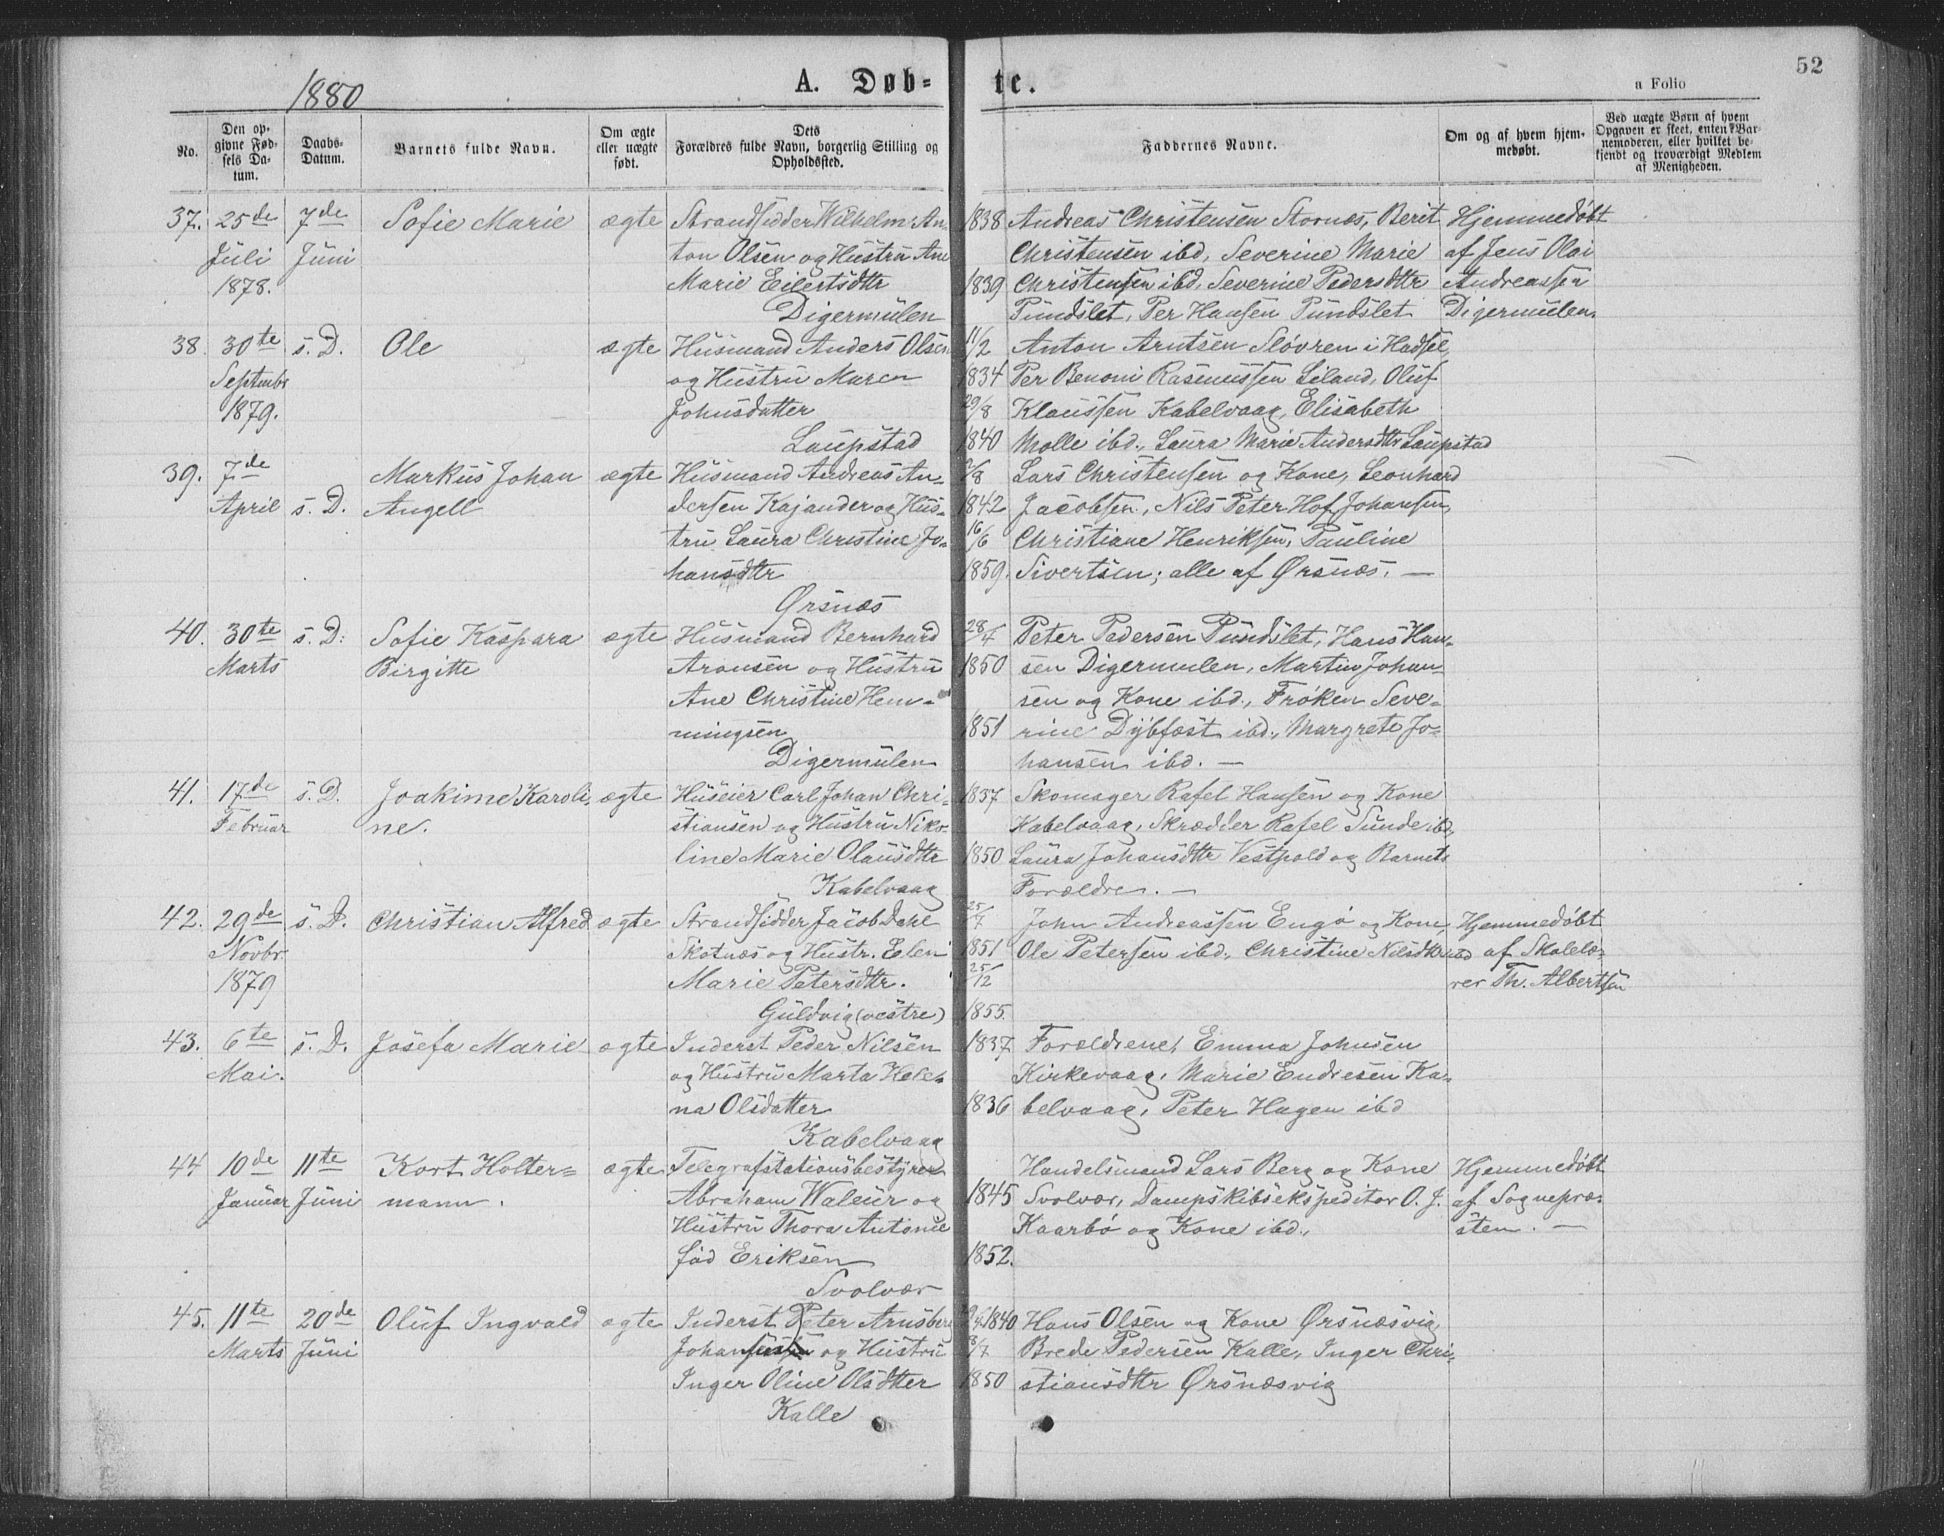 52
1880
A. Døb- te.
a Folio
No.
Den op-
givne Fød-
sels Da-
tum.
Daabs-
Datum.
Barnets fulde Navn.
Om ægte
eller uægte
født.
Dets
Forældres fulde Navn, borgerlig Stilling og
Opholdssted.
Faddernes Navne.
Om og af hvem hjem-
medøbt.
Ved uægte Børn af hvem
Opgaven er skeet, enten Bar-
nemoderen, eller hvilket be-
kjendt og troværdigt Medlem
af Menigheden.
37. 25de 7de Sofie Marie ægte Strandsidder Wilhelm An- 1838 Andreas Christensen Stornæs, Berit Hjemmedøbt
Juli Juni ton Olsen og Hustru Ane Christensen ibd, Severine Marie af Jens Olai
1878. Marie Eilertsdtr 1839 Christensen ibd, Severine Pedersdtr Andreassen
Digermulen Pundslet, Per Hansen Pundslet Digermulen.
38. 30te s. D. Ole ægte Husmand Anders Olsen 11/2 Anton Arntsen Sløvren i Hadsel,
Septembr og Hustru Maren 1834 Per Benoni Rasmussen Liland, Oluf
1879. Johnsdatter 29/8 Klaussen Kabelvaag, Elisabeth
Laupstad 1840 Molle ibd., Laura Marie Andersdtr Laupstad
39. 7de Markus Johan ægte Husmand Andreas An- /8 Lars Christensen og Kone, Leonhard
April s. D. Angell dersen Kajander og Hus- 1842 Jacobsen, Nils Peter Hof Johansen,
tru Laura Christine Jo- 16/6 Christiane Henriksen, Pauline
hansdtr 1859. Sivertsen; alle af Ørsnæs. —
Ørsnæs
40. 30te s. D. Sofie Kaspara ægte Husmand Bernhard 28/7 Peter Pedersen Pundslet, Hans Han-
Marts Birgitte Aronsen og Hustru 1850 sen Digermulen, Martin Johan-
Ane Christine Hem- sen og Kone ibd., Frøken Seve-
mingsen 1851 rine Dybfest ibd., Margrete Jo-
Digermulen hansen ibd. —
41. 17de s. D. Joakime Karoli ægte Huseier Carl Johan Chri- 1837 Skomager Rafel Hansen og Kone
Februar ne. stiansen og Hustru Niko- Kabelvaag, Skrædder Rafel Sunde ibd,
line Marie Olausdtr 1850 Laura Johansdtr Vestpold og Barnets
Kabelvaag Forældre. —
42. 29de s. D. Christian Alfred ægte Strandsidder Jacob Dahl 25/7 John Andreassen Engø og Kone, Hjemmedøbt
Novbr. Skotnæs og Hustr. Elen 1851 Ole Petersen ibd., Christine Nilsdtr ibd af Skolelæ-
1879 Marie Petersdtr. 25/12 rer Th. Albertsen
Guldvig (vestre) 1855.
43. 6te s. D. Josefa Marie ægte Inderst Peder Nilsen 1837 Forældrene, Emma Johnsen
Mai. og Hustru Marta Hele- Kirkevaag, Marie Endresen Ka-
na Olsdatter 1836 belvaag, Peter Hagen ibd
Kabelvaag
44 10de 11te Kort Holter- ægte Telegrafstationsbestyrer Handelsmand Lars Berg og Kone Hjemmedøbt
Januar Juni mann. Abraham Waleur og 1845 Svolvær, Dampskibsekspeditor O. J. af Sognepræ-
Hustru Thora Antonie Kaarbø og Kone ibd., sten. —
fød Eriksen 1852.
Svolvær
45. 11te 20de Oluf Ingvald ægte Inderst Peter Arnsberg 1840 Hans Olsen og Kone Ørsnæsvig,
Marts Juni Johansen og Hustru 8/7 Brede Pedersen Kalle, Inger Chri-
Inger Oline Olsdtter 1850 stiansdtr Ørsnæsvig
Kalle